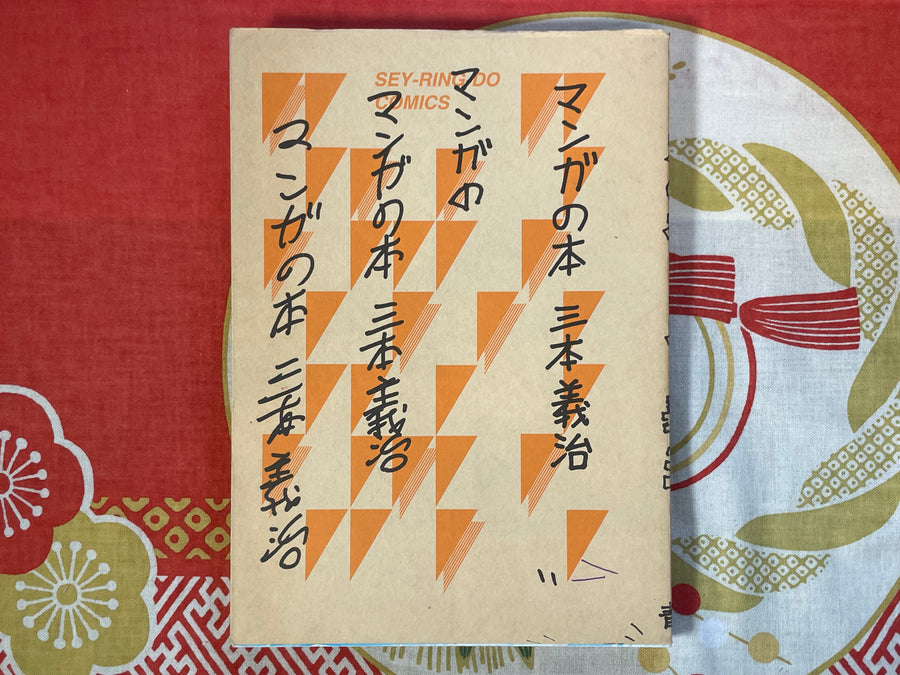 SEY-RING DO
COMICS
マンガの本 三本義治
マンガの
マンガの本 三本義治
マンガの本 三本義治
青